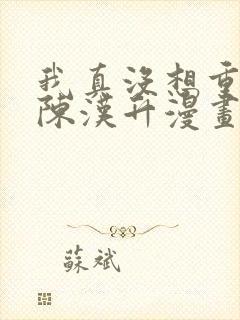 我真沒想重
陳漢升漫畫
蘇斌